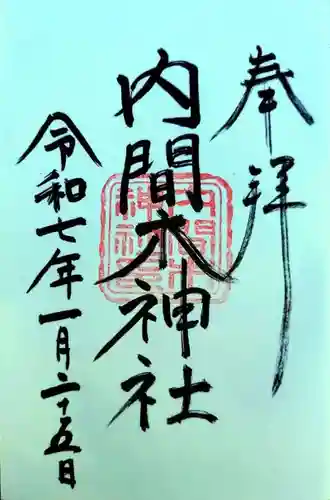 奉拝
内間木神社
令和七年一月二十五日